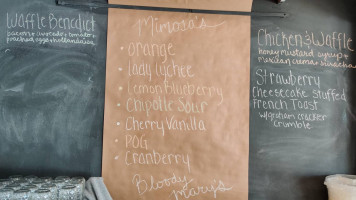 Waffle Benedict
bacon + avocado + tomato +
poached eggs + hollandaise
Mimosa's
• orange
• lady lychee
• Lemon blueberry
• Chipotle Sour
• Cherry Vanilla
• POG
• Cranberry
Bloody
Mary's
Chicken & Waffle
honey mustard syrup +
mexican crema + sriracha
Strawberry
Cheesecake stuffed
French Toast
w/graham cracker
Crumble